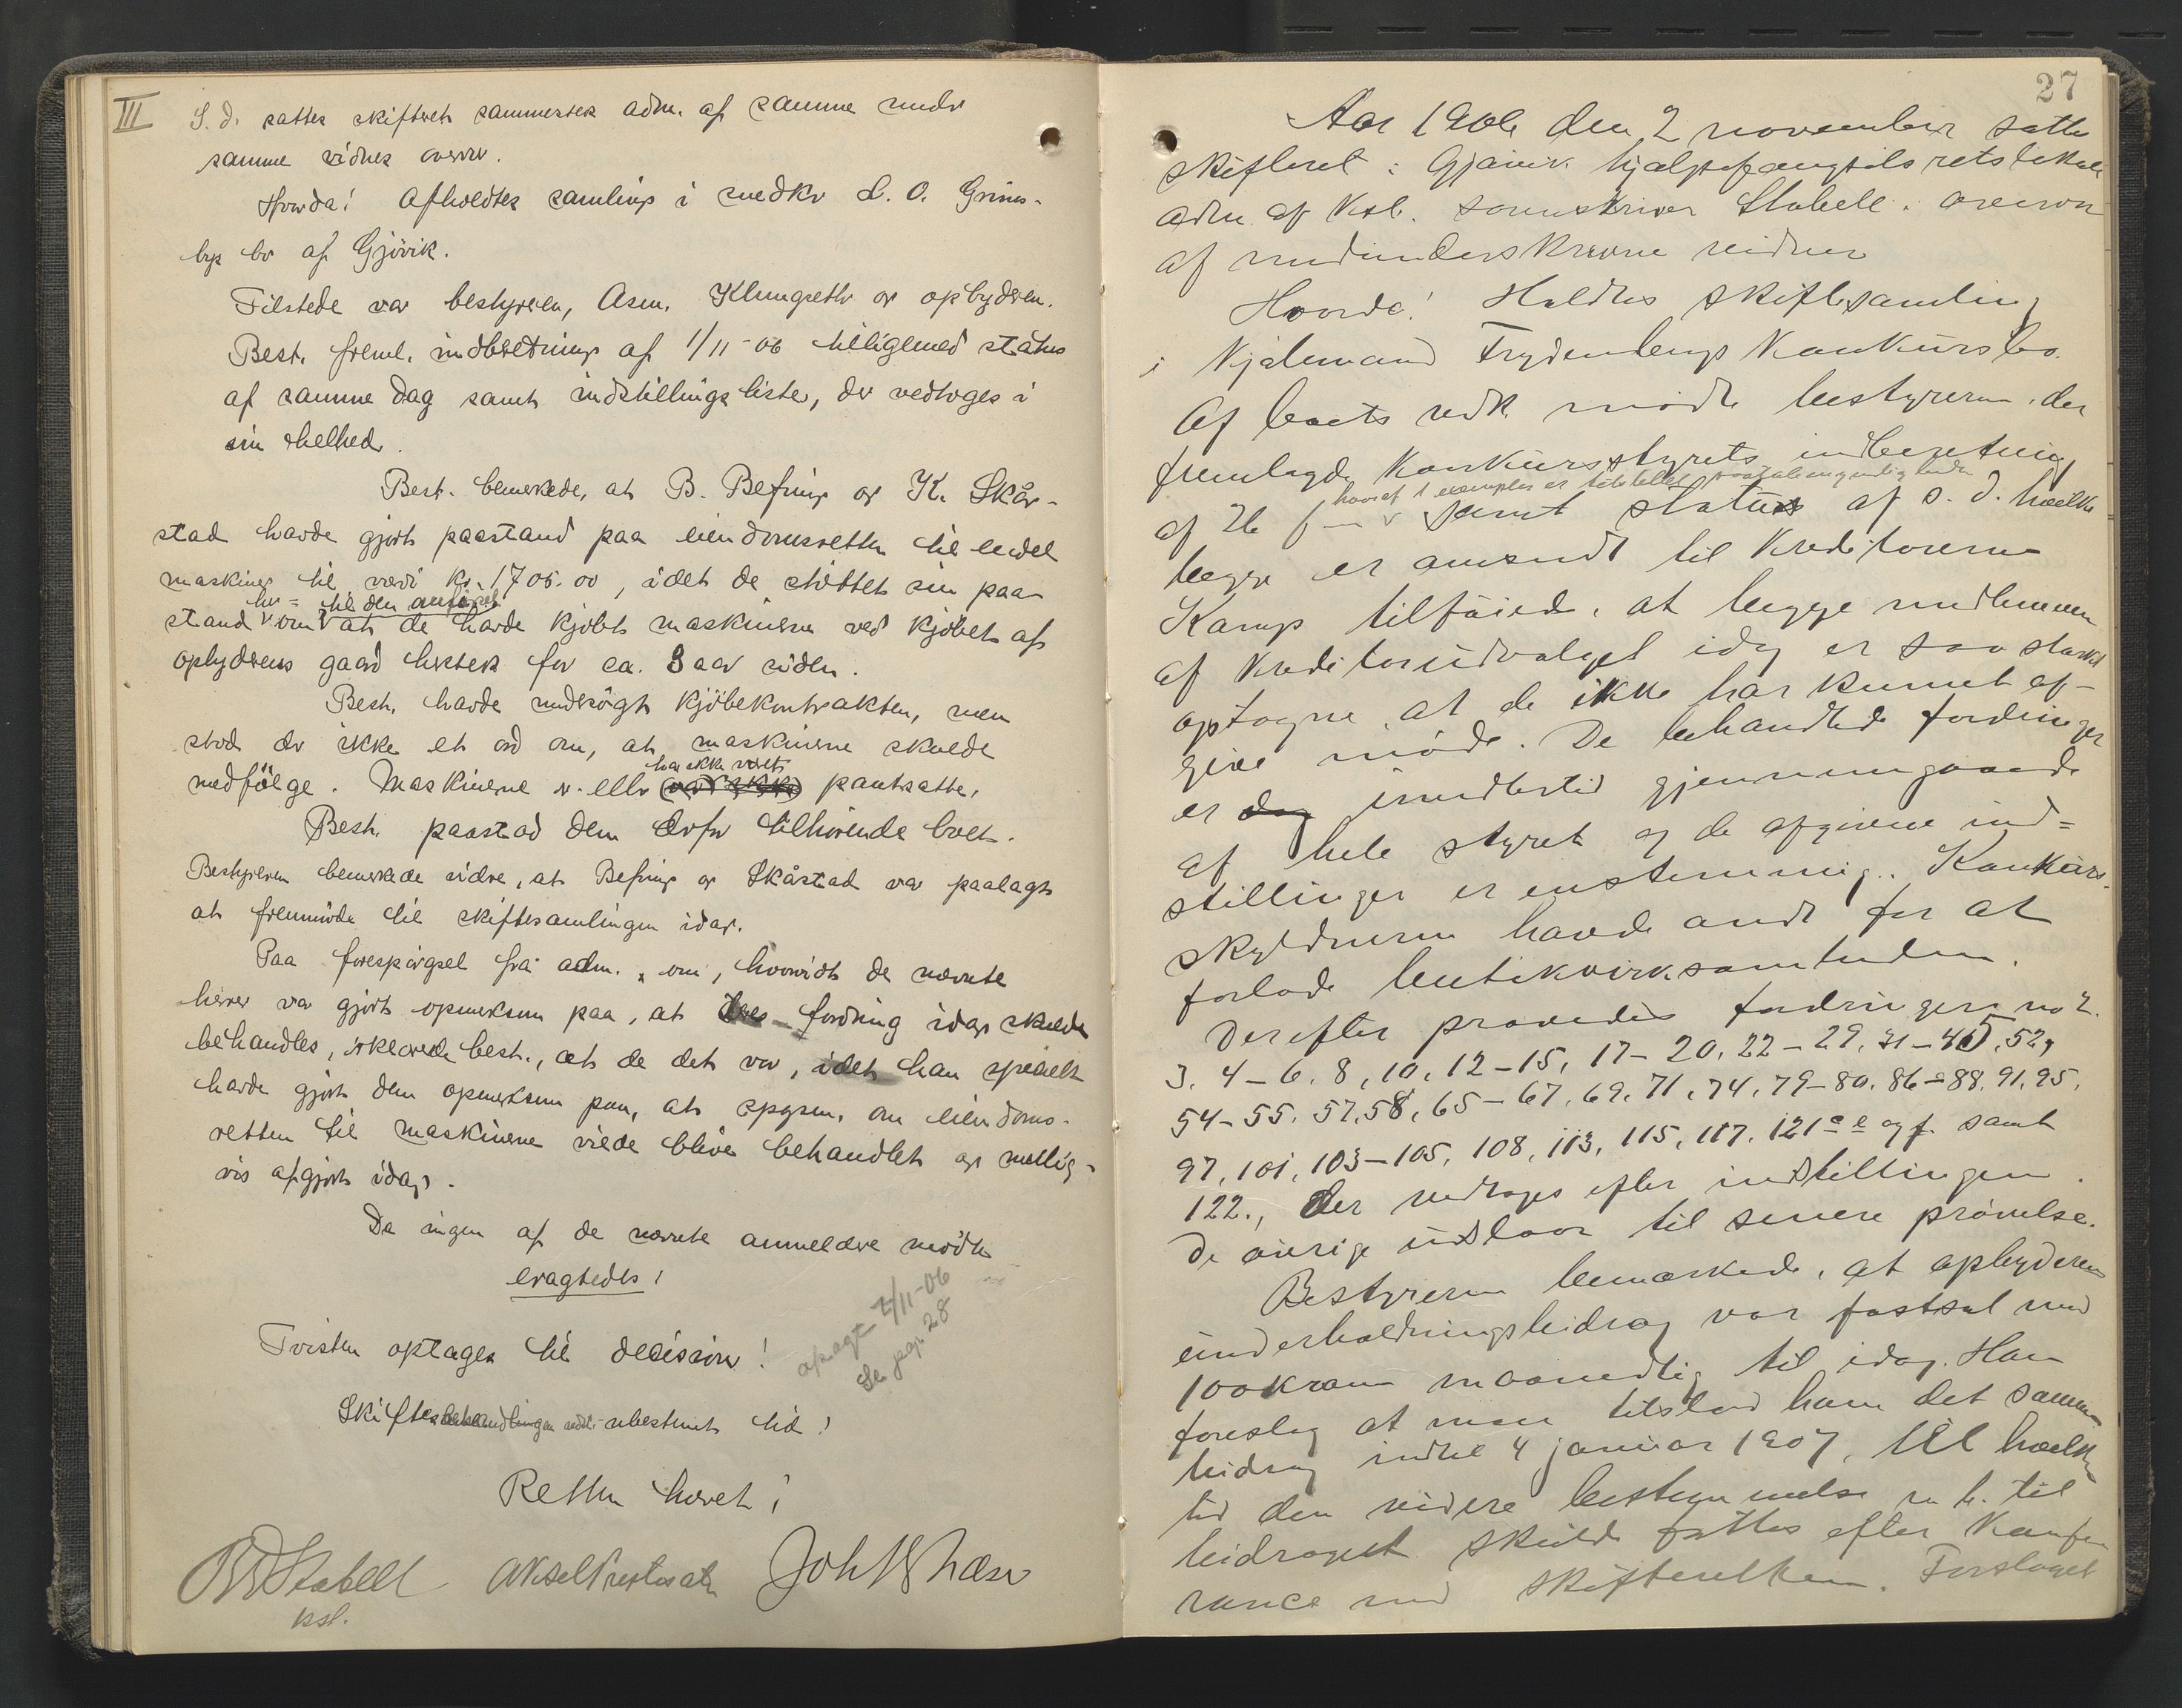 III
S. d. sattes skifteret sammesteds adm. af samme under
samme vidners overvær.
Hvorda! Afholdtes samling i snedker L. O. Grims-
bys bo af Gjövik.
Tilstede var bestyreren, Asm. Klungseth og opbyderen.
Best. freml. indberetning af 1/11-06 tilligemed status
af samme dag samt indstillingsliste, der vedtoges i
sin helhed.
Best. bemerkede, at B. Befring og K. Skår-
stad havde gjort paastand paa eiendomsretten til endel
maskiner til værdi kr. 1705.00, idet de støttet sin paa-
stand om at de havde kjöbt maskinerne ved kjöbet af
opbyderens gaard herteds for ca. 3 aar siden.
Best. havde undersögt kjöbekontrakten, men
stod der ikke et ord om, at maskinerne skulde
har ikke været
medfölge. Maskinerne pantsatte.
Best. paastod dem derfor tilhørende boet.
Bestyreren bemerkede videre, at Befring og Skårstad var paalagt
at fremmöde til skiftesamlingen idag.
Paa forespörgsel fra adm. om, hvorvidt de nævnte
herrer var gjort opmerksom paa, at deres fordring idag skulde
behandles, erklærede best., at de det var, idet han specielt
havde gjort dem opmerksom paa, at spgsm. om eiendoms-
retten til maskinerne vilde blive behandlet og mulig-
vis afgjort idag.
Da ingen af de nævnte anmeldere mödte
eragtedes:
Tvisten optages til decision!
afsagt 2/11-06
Se pag. 28
Skiftebehandlingen uds. ubestemt tid!
Retten hævet!
Stabell
kst.
Joh
27
Aar 1906 den 2 november sattes
skifteret i Gjövik hjælpefængsels retslokale
adm. af kst. sorenskriver Stabell. overvær
af medunderskrevne vidner
Hvorda! Holdtes skiftesamling
i Kjøbmand Frydenbergs Konkursbo.
Af boets vedk. mödte bestyreren, der
fremlagde Konkursstyrets indberetning
hvoraf 1 exemplar er tilstillet
af 26 f. m. samt status af s. d. hvilke
begge er omsendt til Kreditorerne
Karup tilföied, at begge medlemmer
af Kreditorudvalget idag er saa sterkt
optagne, at de ikke har kunnet af-
give möde. De behandlede fordringer
er imidlertid gjennemgaaede
af hele styret og de afgivne ind=
stillinger er enstemmig. Konkurs-
skyldneren havde andt for at
forlade butikvirksomheden.
Derefter prøvedes fordringerne no 2.
3. 4-6. 8, 10, 12-15, 17-20, 22-29, 31-45, 52,
54-55, 57, 58, 65-67, 69, 71, 74, 79-80, 86-88, 91, 95,
97, 101, 103-105, 108, 113, 115, 117, 121 e og f. samt
122., der vedtoges efter indstillingen.
De øvrige udstaar til senere prövelse.
Bestyreren bemærkede, at opbyderens
underholdningsbidrag var fastsat med
100 kroner maanedlig til idag. Han
foreslog at man tilstod ham det samme
bidrag indtil 4 januar 1907, til hvilken
tid den videre bestemmelse m. h. til
bidraget skulde fattes efter konfe-
rance med skifteretten. Forslaget